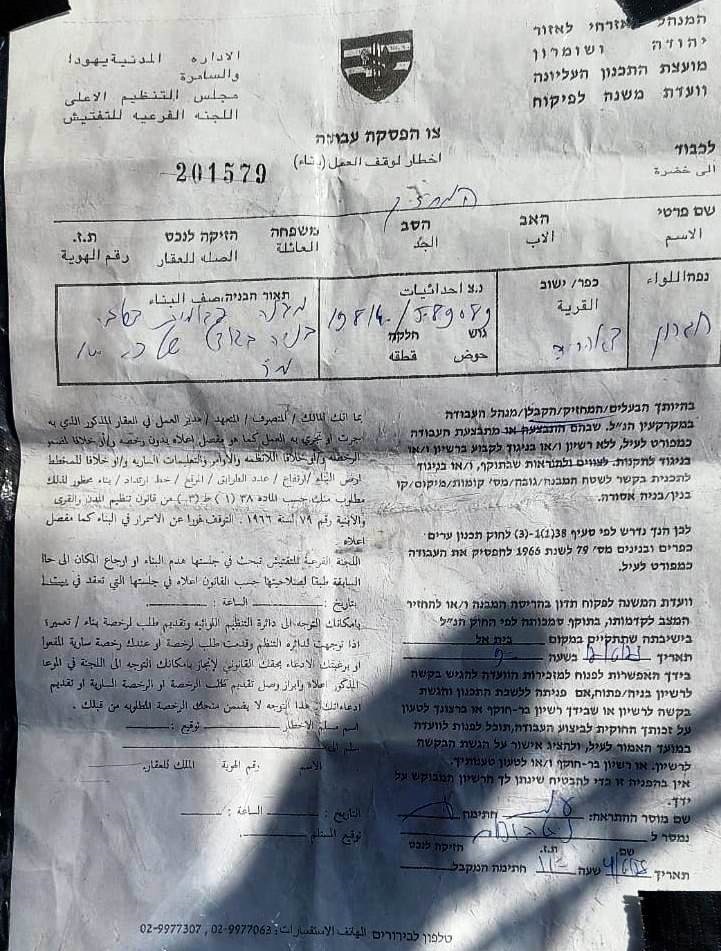 המנהל האזרחי לאזור
יהודה ושומרון
מועצת התכנון העליונה
וועדת משנה לפיקוח
الاداره المدنية يهودا
والسامرة
مجلس التنظيم الاعلى
اللجنه الفرعيه للتفتيش
צו הפסקת עבודה
اخطار لوقف العمل (بناء)
201579
לכבוד
الى حضرة
המחזיק
שם פרטי האב הסב משפחה הזיקה לנכס ת.ז.
الاسم الاب الجد العائلة الصله للعقار رقم الهوية
נפה/اللواء כפר/ ישוב נ.צ احداثيات תאור הבניה/وصف البناء
القرية
חברון 19814 / 589089
גוש חלקה
حوض قطعه
בהיותך הבעלים/המחזיק/הקבלן/מנהל העבודה
במקרקעין הנ"ל. שבהם התבצעה או מתבצעת העבודה
כמפורט לעיל, ללא רשיון ו/או בניגוד לקבוע ברשיון ו/או
בניגוד לתקנות. לצווים ולהוראות שבתוקף, ו/או בניגוד
לתכנית בקשר לשטח המבנה/גובה/מס' קומות/מיקום/קו
בנין/בניה אסורה.
לכן הנך נדרש לפי סעיף 38(1)-(3) לחוק תכנון ערים
כפרים ובנינים מס' 79 לשנת 1966 להפסיק את העבודה
כמפורט לעיל.
וועדת המשנה לפקוח תדון בהריסת המבנה ו/או להחזיר
המצב לקדמותו, בתוקף סמכותה לפי החוק הנ"ל
בישיבתה שתתקיים במקום בית אל
תאריך בשעה
בידך האפשרות לפנות למזכירות הוועדה להגיש בקשה
לרשיון בניה/פתוח, אם פניתה ללשכת התכנון והגשת
בקשה לרשיון או שבידך רשיון בר-תוקף או ברצונך לטעון
על זכותך החוקית לביצוע העבודה, תוכל לפנות לוועדה
במועד האמור לעיל, ולהציג אישור על הגשת הבקשה
לרשיון. או רשיון בר-תוקף ו/או לטעון טענותיך.
אין בהפניה זו כדי להבטיח שינתן לך הרשיון המבוקש על
ידך.
שם מוסר ההתראה: חתימה
נמסר ל
שם ת.ז. הזיקה לנכס
תאריך שעה חתימת המקבל
بما انك المالك / المتصرف / المتعهد / مدير العمل في العقار المذكور الذي به
اجريت او تجري به العمل كما هو مفصل اعلاه بدون رخصه و/او خلافا لمضمون
الرخصه و/او خلافا للانظمه والاوامر والتعليمات الساريه و/او خلافا للمخطط
لارض البناء / ارتفاع / عدد الطوابق / الموقع / خط ارتداد / بناء محظور لذلك
مطلوب منك حسب الماده ٣٨ (١) ط (٣) من قانون تنظيم المدن والقرى
والابنية رقم ٧٩ لسنة ١٩٦٦. التوقف فورا عن الاستمرار في البناء كما مفصل
اعلاه
اللجنه الفرعية للتفتيش تبحث في جلستها هدم البناء او ارجاع المكان الى حالته
السابقة طبقا لصلاحيتها حسب القانون اعلاه في جلستها التي تعقد في
بتاريخ: الساعة:
بامكانك التوجه الى دائرة التنظيم اللوائيه وتقديم طلب لرخصة بناء / تعمير؛
اذا توجهت لدائره التنظيم وقدمت طلب لرخصة او عندك رخصة سارية المفعول
او برغبتك الادعاء بحقك القانوني لانجاز بامكانك التوجه الى اللجنة في الموعد
المذكور اعلاه وابراز وصل تقديم طلب الرخصة او الرخصة السارية او تقديم
ادعائاتك. هذا التوجه لا يضمن منحك الرخصة المطلوبه من قبلك.
اسم مسلم الاخطار توقيع:
سلم الى
الاسم رقم الهوية الملك للعقار.
التاريخ: الساعة:
توقيع المستلم
טלפון לבירורים الهاتف الاستفسارات: 02-9977063, 02-9977307